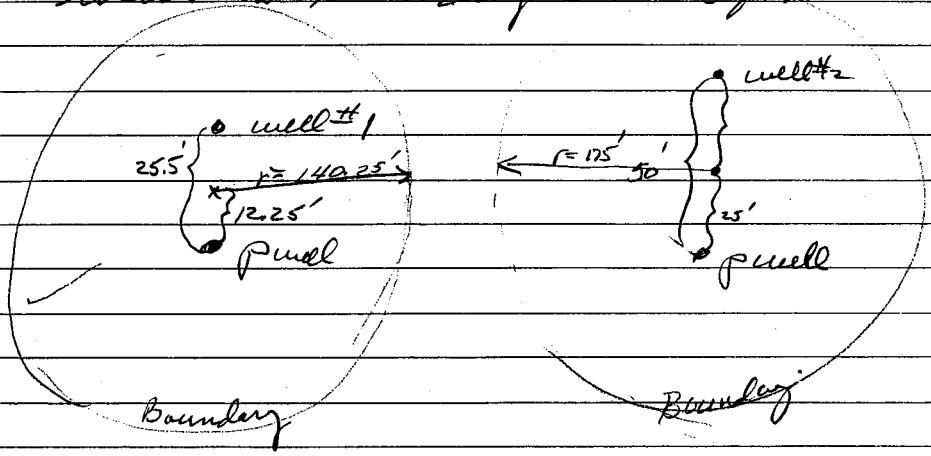 well #1
25.5'
r= 140.25'
12.25'
pwell
Boundary
well #2
r= 175'
50'
25'
pwell
Boundary